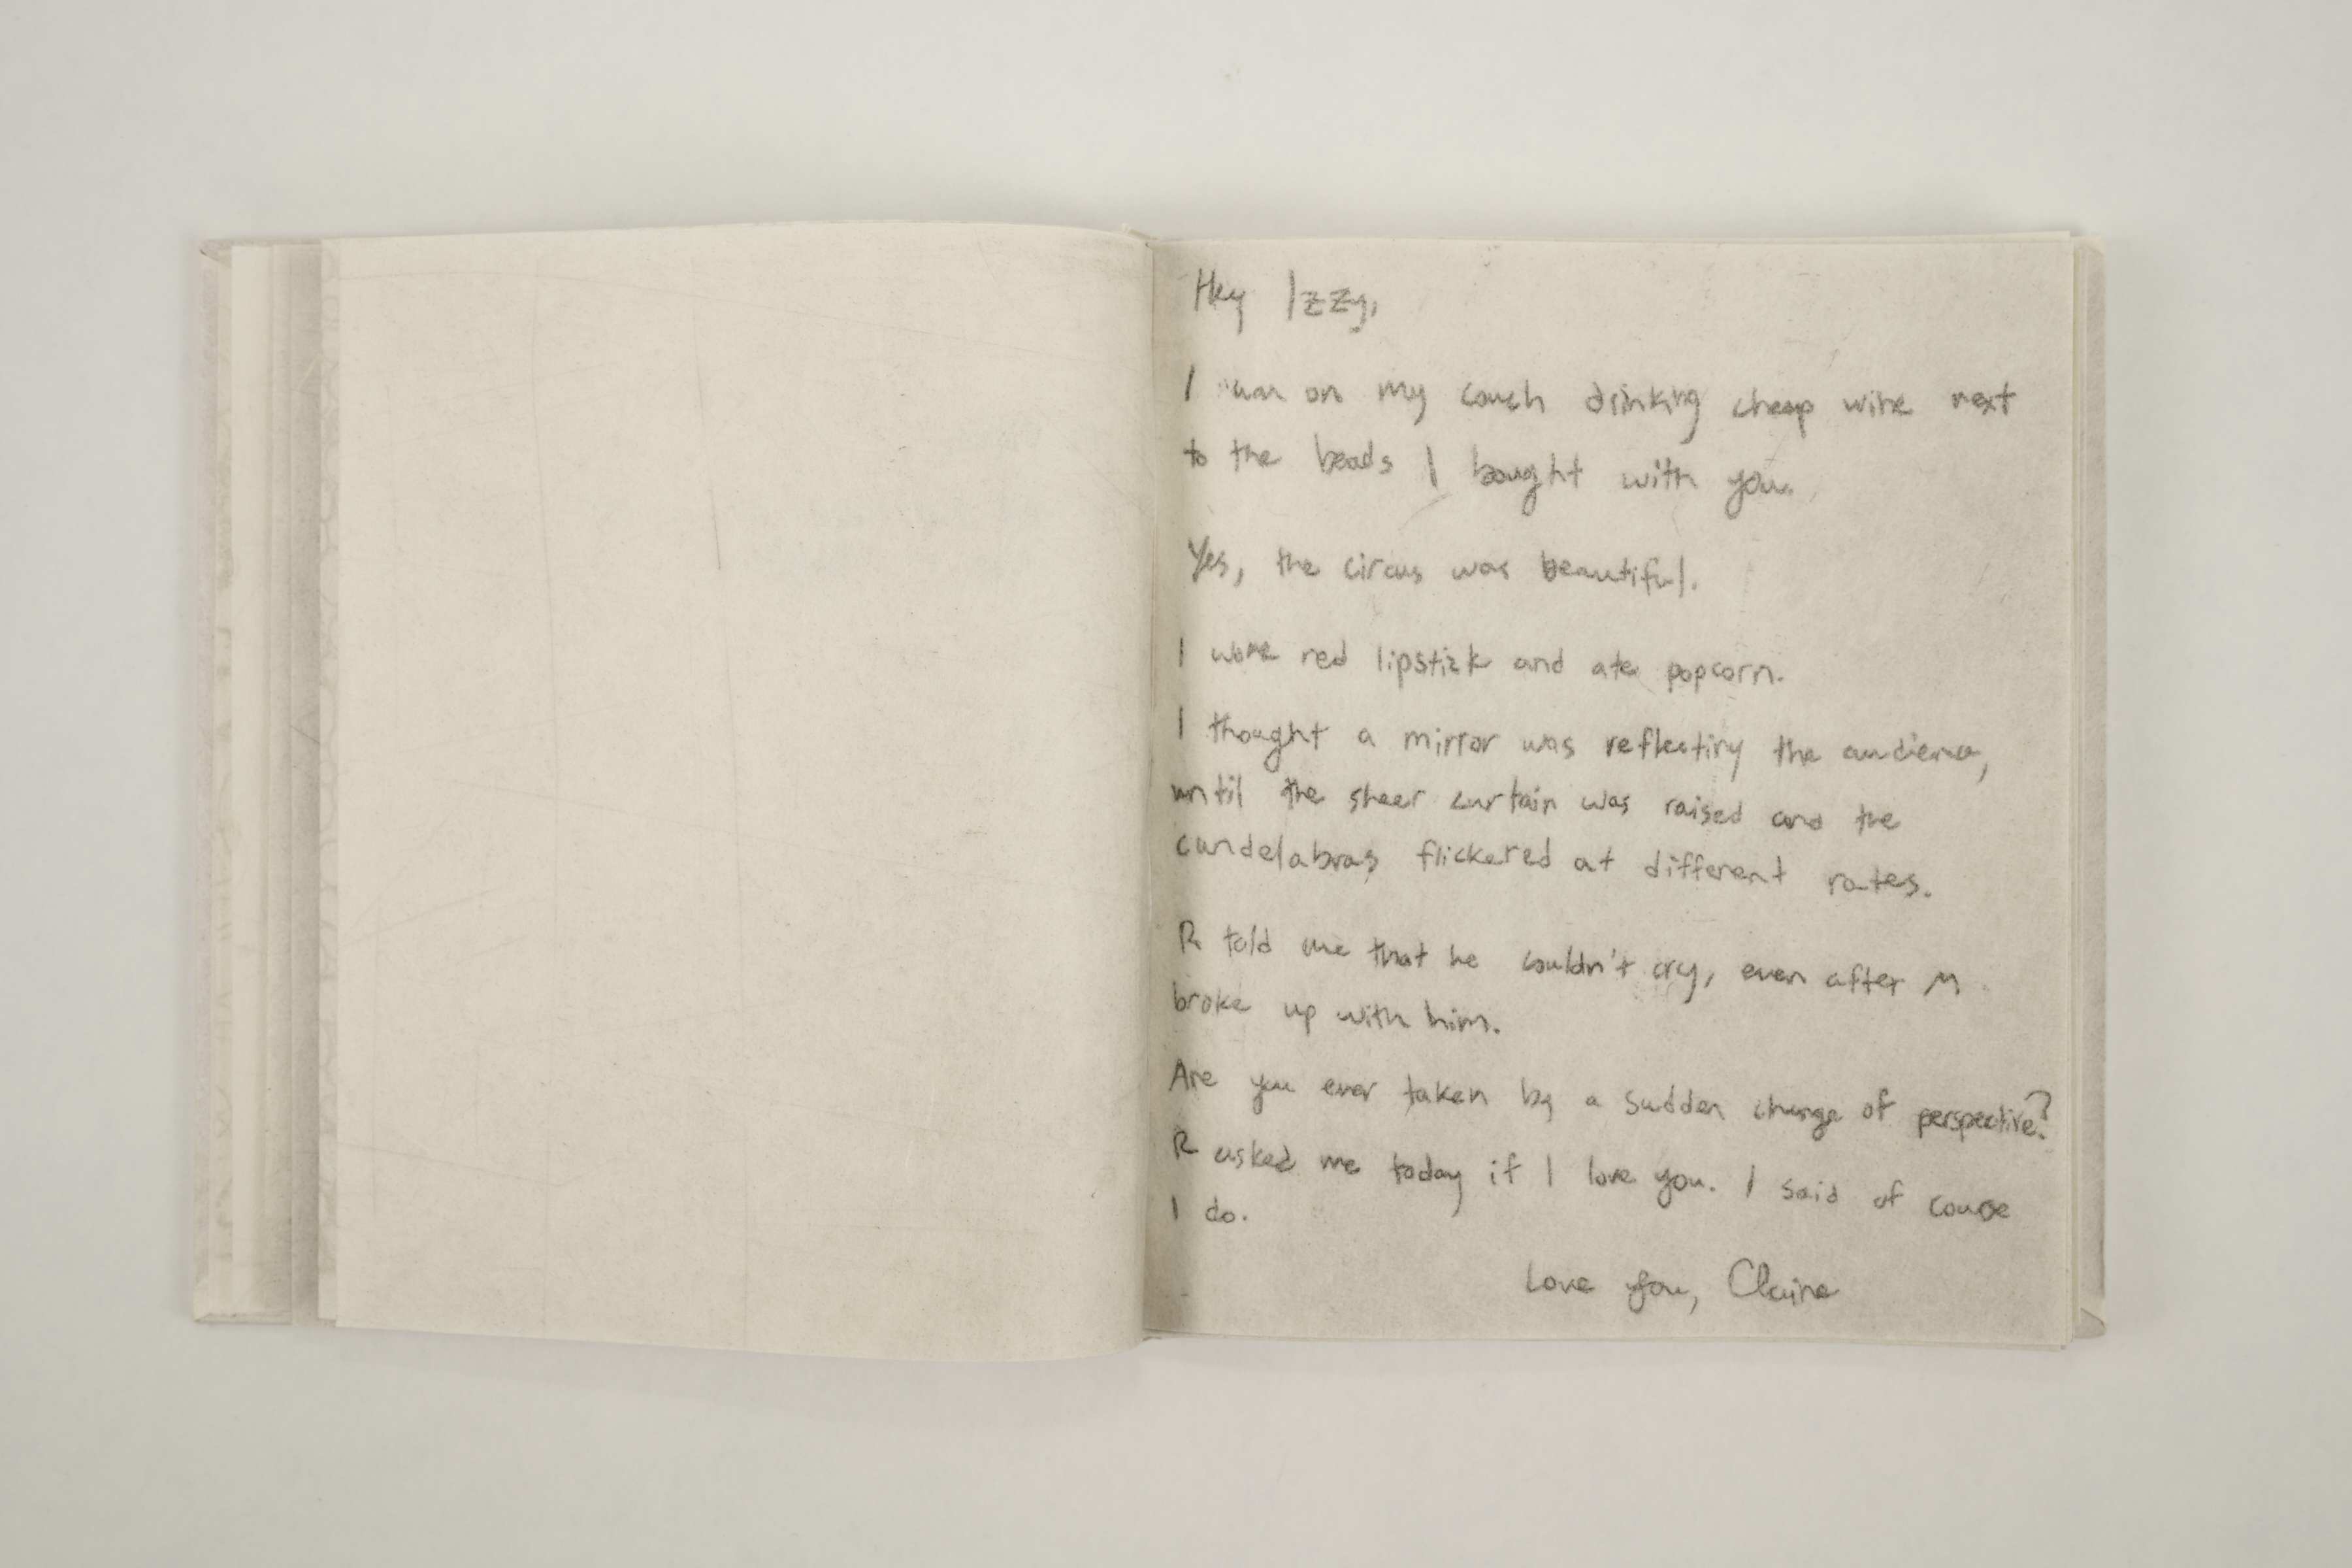 Hey Izzy,
I am on my couch drinking cheap wine next
to the beads I bought with you.
Yes, the circus was beautiful.
I wore red lipstick and ate popcorn.
I thought a mirror was reflecting the audience,
until the sheer curtain was raised and the
candelabras flickered at different rates.
R told me that he couldn't cry, even after M
broke up with him.
Are you ever taken by a sudden change of perspective?
R asked me today if I love you. I said of course
I do.
Love you, Claire